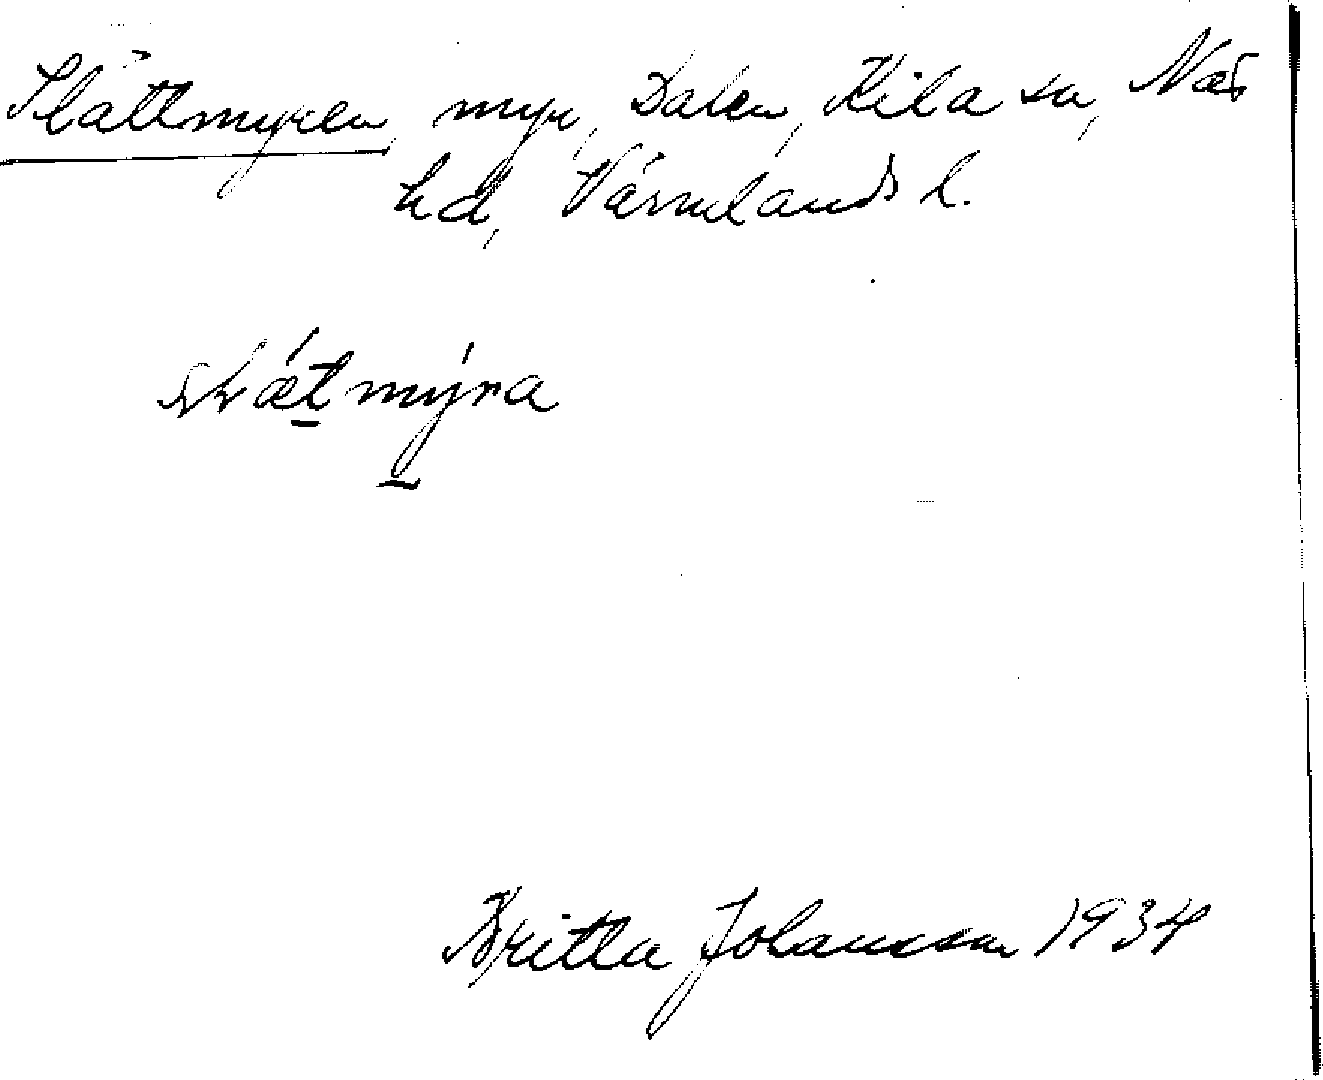 Slåttmyren, myr, Dalen, Kila sn, Näs
hd, Värmlands l.
slæ̀tmỳra
Britta Johansson 1934